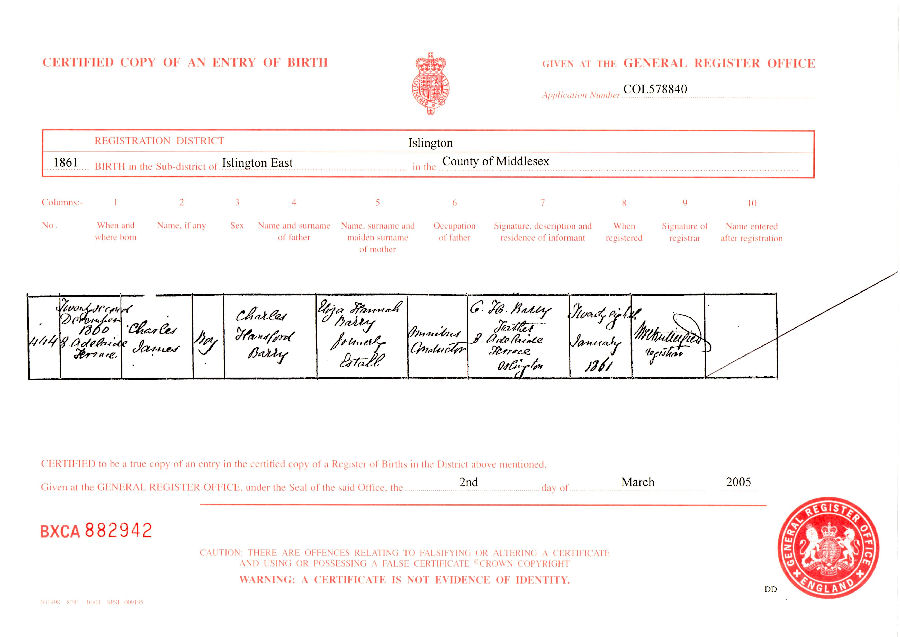 CERTIFIED COPY OF AN ENTRY OF BIRTH
GIVEN AT THE GENERAL REGISTER OFFICE
Application Number COL578840
REGISTRATION DISTRICT Islington
1861 BIRTH in the Sub-district of Islington East in the County of Middlesex
Columns:- 1 2 3 4 5 6 7 8 9 10
No. When and where born Name, if any Sex Name and surname of father Name, surname and maiden surname of mother Occupation of father Signature, description and residence of informant When registered Signature of registrar Name entered after registration
444
Twenty second
December
1860
8 Adelaide
Terrace
Charles
James
Boy
Charles
Handford
Barry
Eliza Hannah
Barry
formerly
Estall
Omnibus
Conductor
C. H. Barry
Father
8 Adelaide
Terrace
Islington
Twenty eighth
January
1861
registrar
CERTIFIED to be a true copy of an entry in the certified copy of a Register of Births in the District above mentioned.
Given at the GENERAL REGISTER OFFICE, under the Seal of the said Office, the 2nd day of March 2005
BXCA 882942
CAUTION: THERE ARE OFFENCES RELATING TO FALSIFYING OR ALTERING A CERTIFICATE
AND USING OR POSSESSING A FALSE CERTIFICATE ©CROWN COPYRIGHT
WARNING: A CERTIFICATE IS NOT EVIDENCE OF IDENTITY.
GENERAL REGISTER OFFICE
ENGLAND
DD